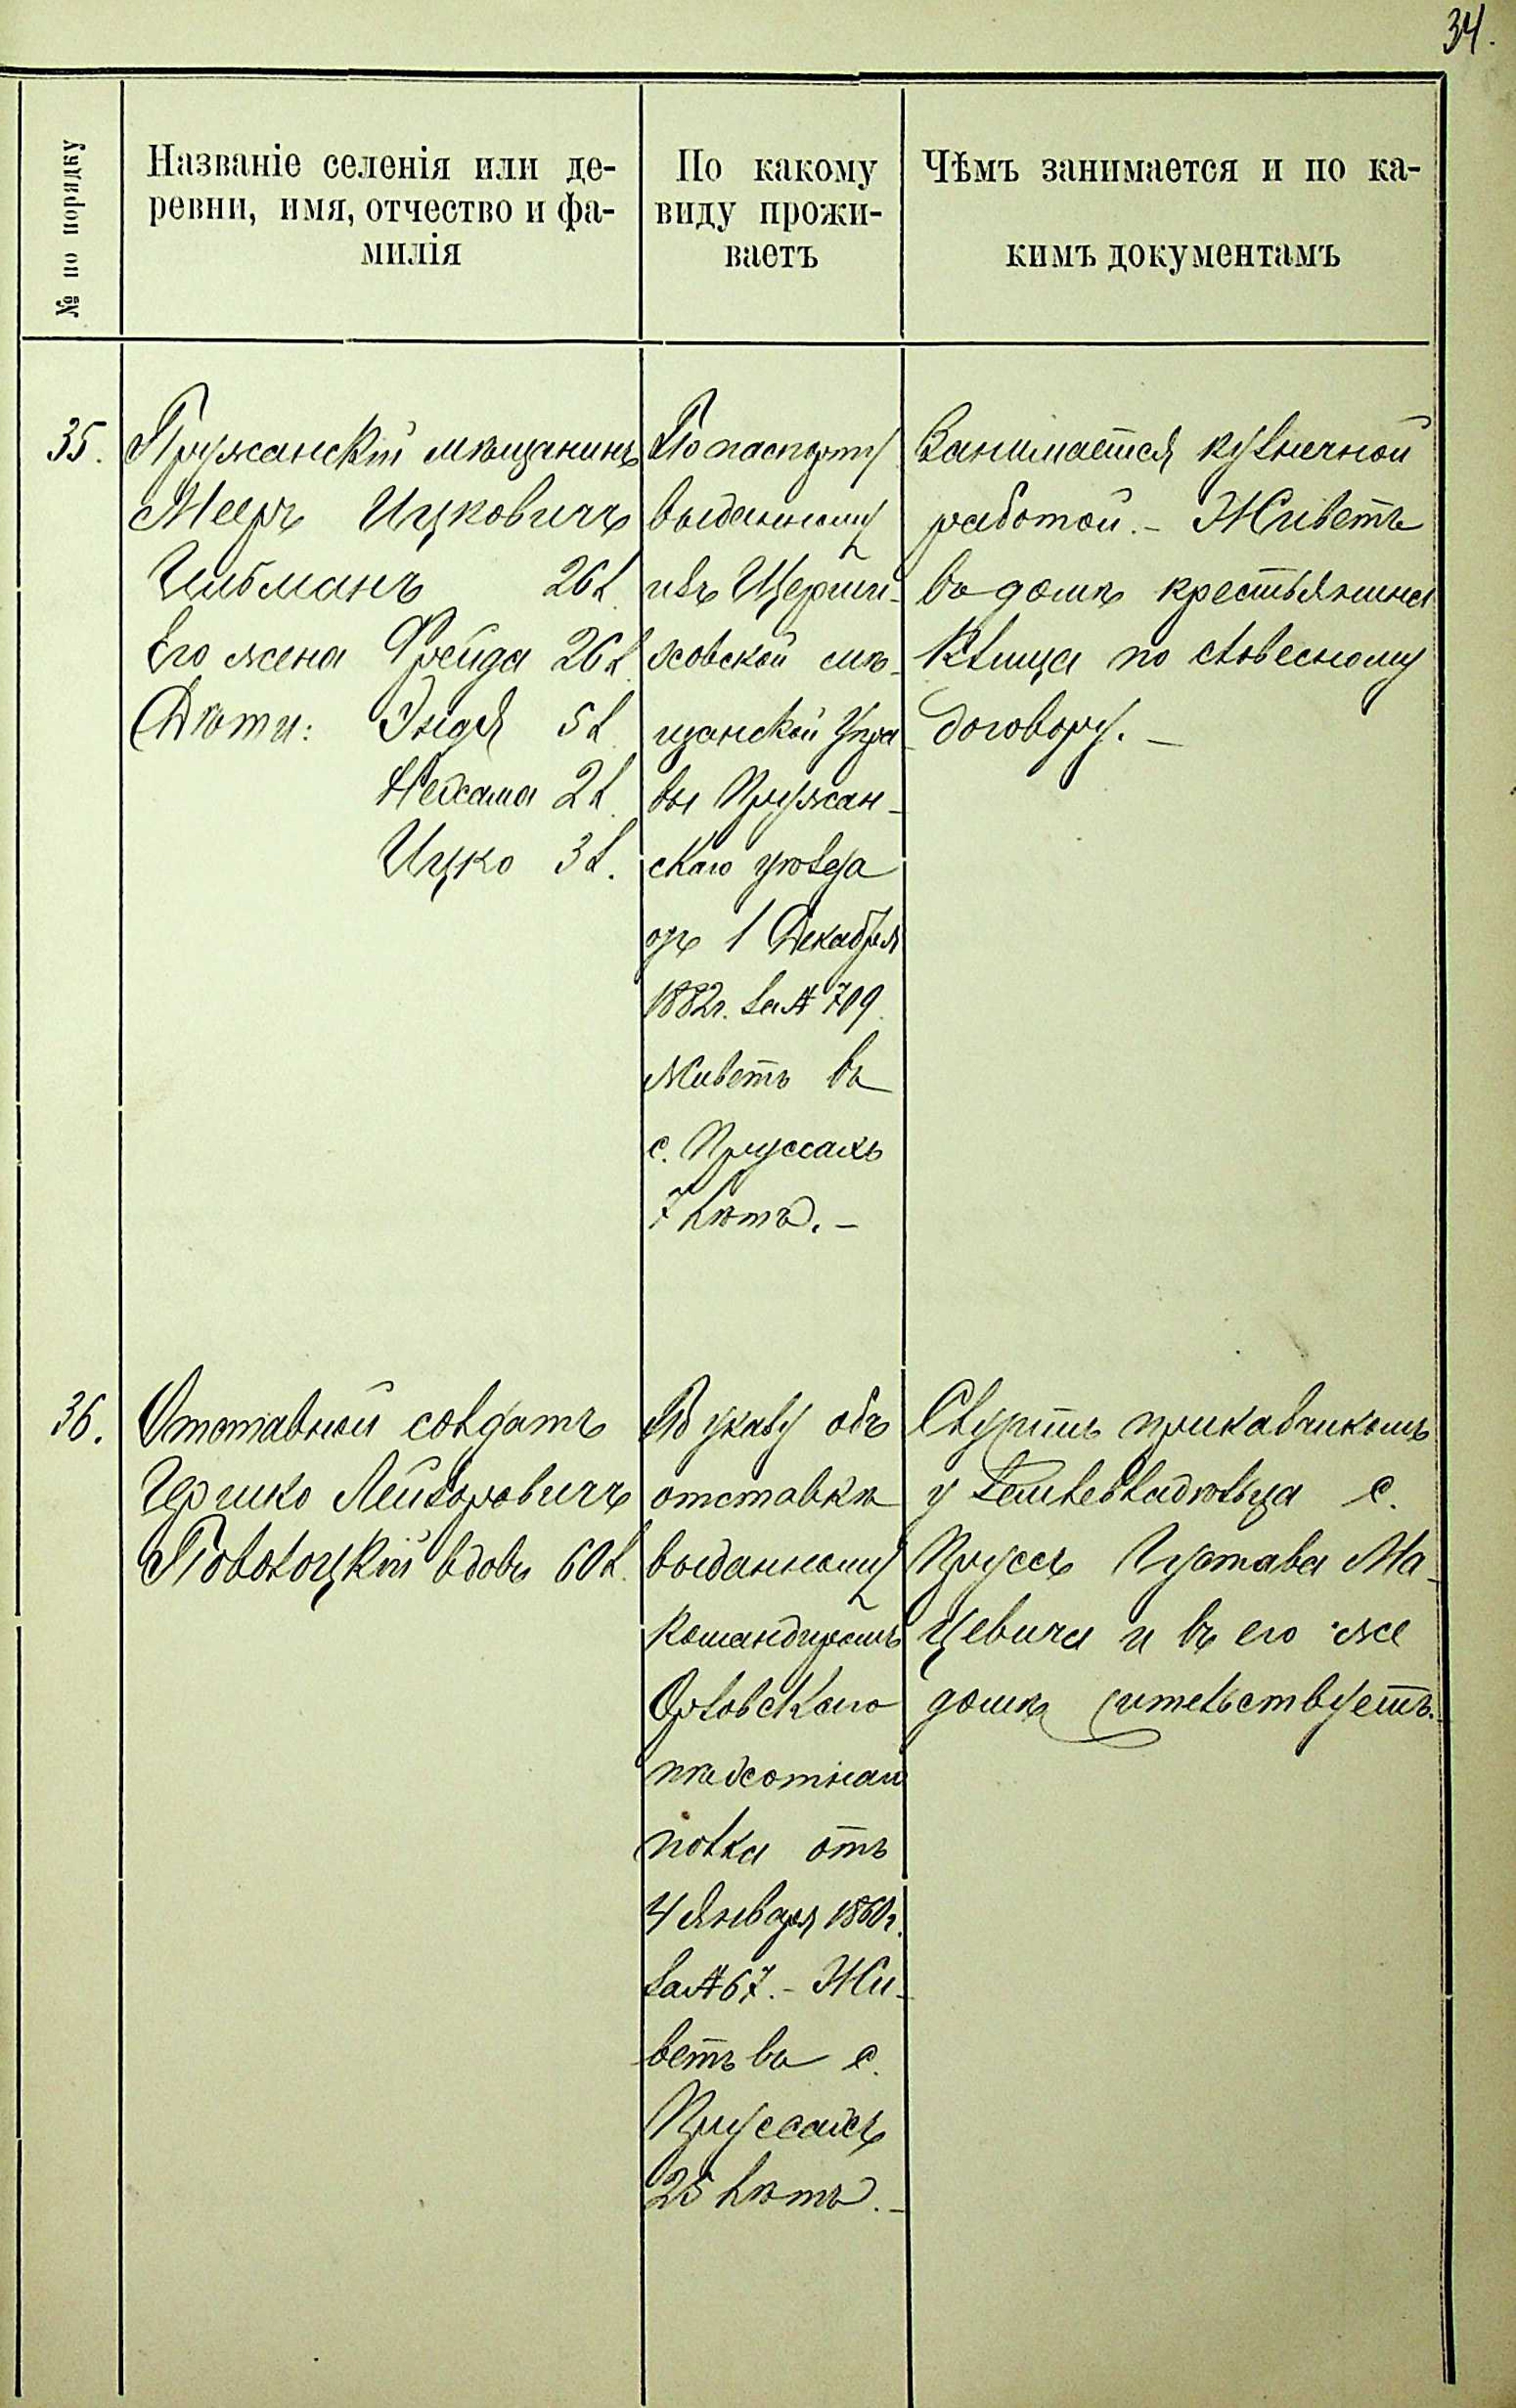 34.
№ по порядку
Названіе селенія или де-
ревни, имя, отчество и фа-
милія
По какому
виду прожи-
ваетъ
Чѣмъ занимается и по ка-
кимъ документамъ
35.
Пружанскій мѣщанинъ
Мееръ Ицковичъ
26 л.
Его жена Фрейда 26 л.
Дѣти: Эндя 5 л.
Нехама 2 л.
Ицко 3 л.
По паспорту
выданному
изъ
совской мѣ-
щанской Упра-
вы Пружан-
скаго уѣзда
отъ 1 Декабря
1882г. за № 709.
Живетъ въ
с. Пруссахъ
7 лѣтъ. –
Занимается кузнечной
работой. – Живетъ
въ домѣ крестьянина
Клица по словесному
договору. –
36.
Отставной солдатъ
Гершко Лейзоровичъ
Поволоцкій вдовъ 60 л.
По указу объ
отставкѣ
выданному
командиромъ
Орловскаго
пѣхотнаго
полка отъ
4 Января 1860г.
за № 67. – Жи-
ветъ въ с.
Пруссахъ
25 лѣтъ. –
Служитъ приказчикомъ
у землевладѣльца с.
Пруссъ Густава Ма-
цевича и въ его же
домѣ жительствуетъ.